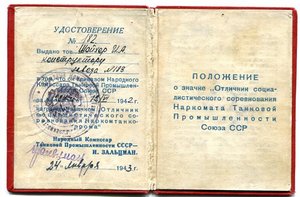 УДОСТОВЕРЕНИЕ
№ 112
Выдано тов. Шайкер И.А.
конструктору
завода № 183
в том, что он Наркомом Народного
Комиссара Танковой Промышленности
СССР от 1942 г.
награжден значком „Отличник
социалистического соревнования
Наркомтанкопрома“
Народный Комиссар
Танковой Промышленности СССР—
И. ЗАЛЬЦМАН.
24 января 1943 г.
ПОЛОЖЕНИЕ
о значке „Отличник социа-
листического соревнования
Наркомата Танковой
Промышленности
Союза ССР